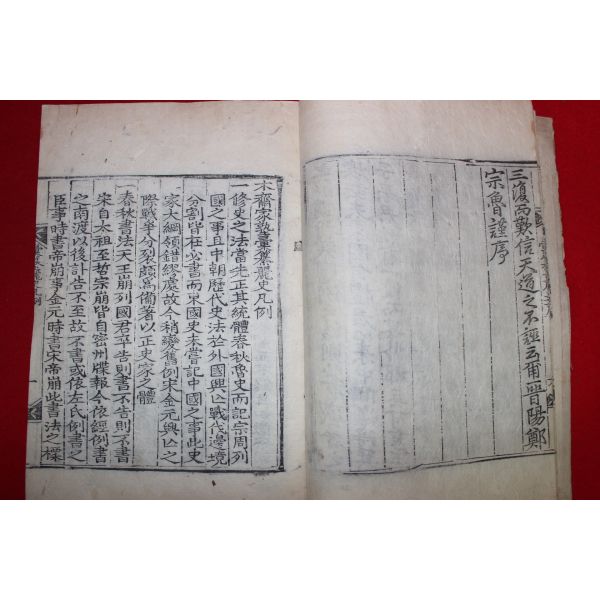 三復而歎信天道之不誣云爾晉陽鄭
宗魯謹序
木齋家塾彙纂麗史凡例
一修史之法當先正其統體春秋魯史而記宗周列
國之事且中朝歷代史法於外國興亾戰伐邊境
分割皆在必書而東國史未嘗記中國之事此史
家大綱領錯繆處故今稍變舊例宋金元興亾之
際戰爭分裂頗爲備著以正史家之體
一春秋書法天王崩列國君卒告則書不告則不書
宋自太祖至哲宗崩皆自密州牒報今依經例書
之南渡以後計告不至故不書或依左氏例書之
臣事時書帝崩事金元時書宋帝崩此書法之㮣